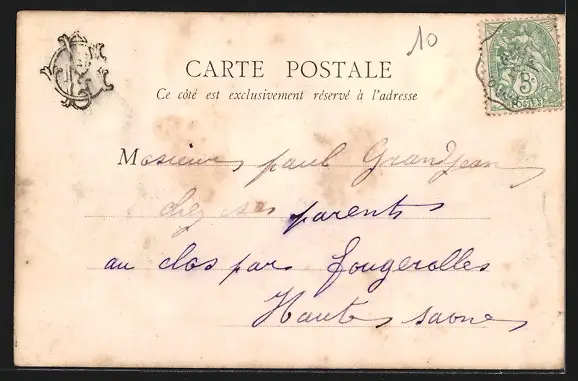 10
CARTE POSTALE
Ce côté est exclusivement réservé à l'adresse
5
POSTES
Monsieur paul Grandjean
chez ses parents
au clos par fougerolles
Haute saone